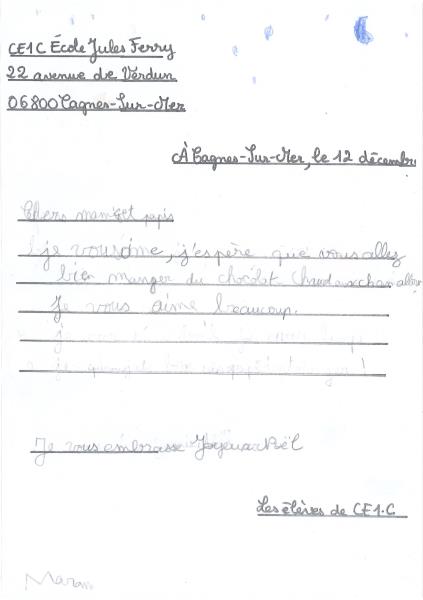 CE1C École Jules Ferry
22 avenue de Verdun
06800 Cagnes-Sur-Mer
À Cagnes-Sur-Mer, le 12 décembre
Chers mamie et papis
je vous aime, j'espère que vous allez
bien manger du chocolat chaud aux chamallow
Je vous aime beaucoup.
Je vous embrasse Joyeux Noël
Les élèves de CE1.C